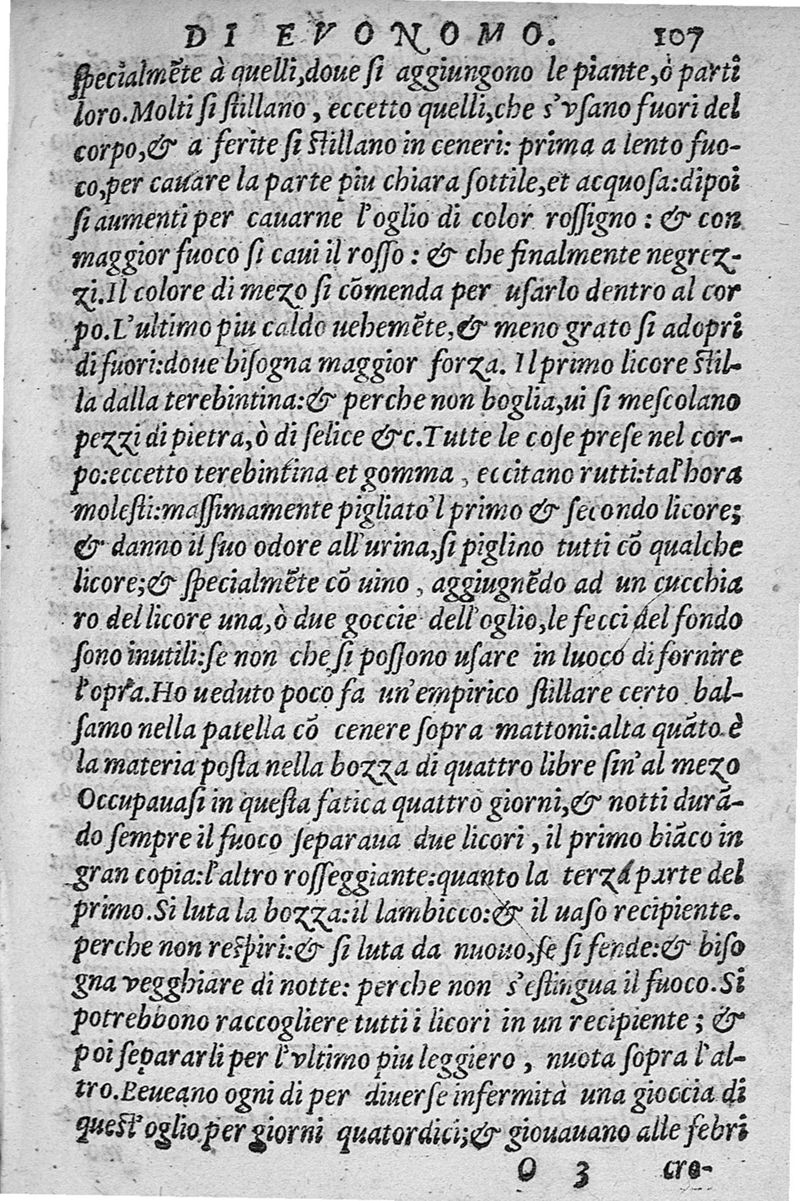 DI EVONOMO. 107
ſpecialmẽte à quelli,doue ſi aggiungono le piante,ò parti
loro.Molti ſi ſtillano, eccetto quelli,che s'vſano fuori del
corpo,& a ferite ſi ſtillano in ceneri: prima a lento fuo-
co,per cauare la parte piu chiara ſottile,et acquoſa:dipoi
ſi aumenti per cauarne l'oglio di color roſſigno: & con
maggior fuoco ſi caui il roſſo: & che finalmente negrez-
zi.Il colore di mezo ſi cõmenda per uſarlo dentro al cor
po.L'ultimo piu caldo uehemẽte,& meno grato ſi adopri
di fuori:doue biſogna maggior forza. Il primo licore ſtil-
la dalla terebintina:& perche non boglia,ui ſi meſcolano
pezzi di pietra,ò di ſelice &c.Tutte le coſe preſe nel cor-
po:eccetto terebintina et gomma, eccitano rutti:tal'hora
moleſti:maſſimamente pigliato'l primo & ſecondo licore;
& danno il ſuo odore all'urina,ſi piglino tutti cõ qualche
licore;& ſpecialmẽte cõ uino, aggiugnẽdo ad un cucchia
ro del licore una,ò due goccie dell'oglio,le fecci del fondo
ſono inutili:ſe non che ſi poſſono uſare in luoco di fornire
l'opra.Ho ueduto poco fa un'empirico ſtillare certo bal-
ſamo nella patella cõ cenere ſopra mattoni:alta quãto è
la materia poſta nella bozza di quattro libre ſin'al mezo
Occupauaſi in queſta fatica quattro giorni,& notti durã-
do ſempre il fuoco ſeparaua due licori, il primo biãco in
gran copia:l'altro roſſeggiante:quanto la terza parte del
primo.Si luta la bozza:il lambicco:& il uaſo recipiente.
perche non reſpiri:& ſi luta da nuouo,ſe ſi fende:& biſo
gna vegghiare di notte: perche non s'eſtingua il fuoco.Si
potrebbono raccogliere tutti i licori in un recipiente; &
poi ſepararli per l'vltimo piu leggiero, nuota ſopra l'al-
tro.Beueano ogni di per diuerſe infermità una gioccia di
queſt'oglio per giorni quatordici;& giouauano alle febri
O 3 cre-